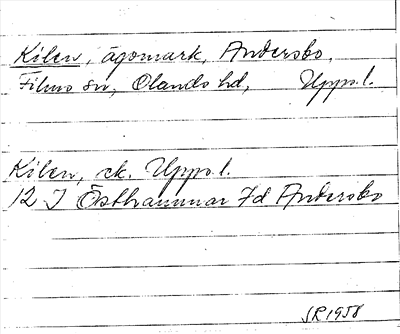 Kilen, ägomark, Andersbo.
Films sn, Olands hd, Upps.l.
Kilen, ek. Upps.l.
12 I Östhammar 7d Andersbo
SR 1958